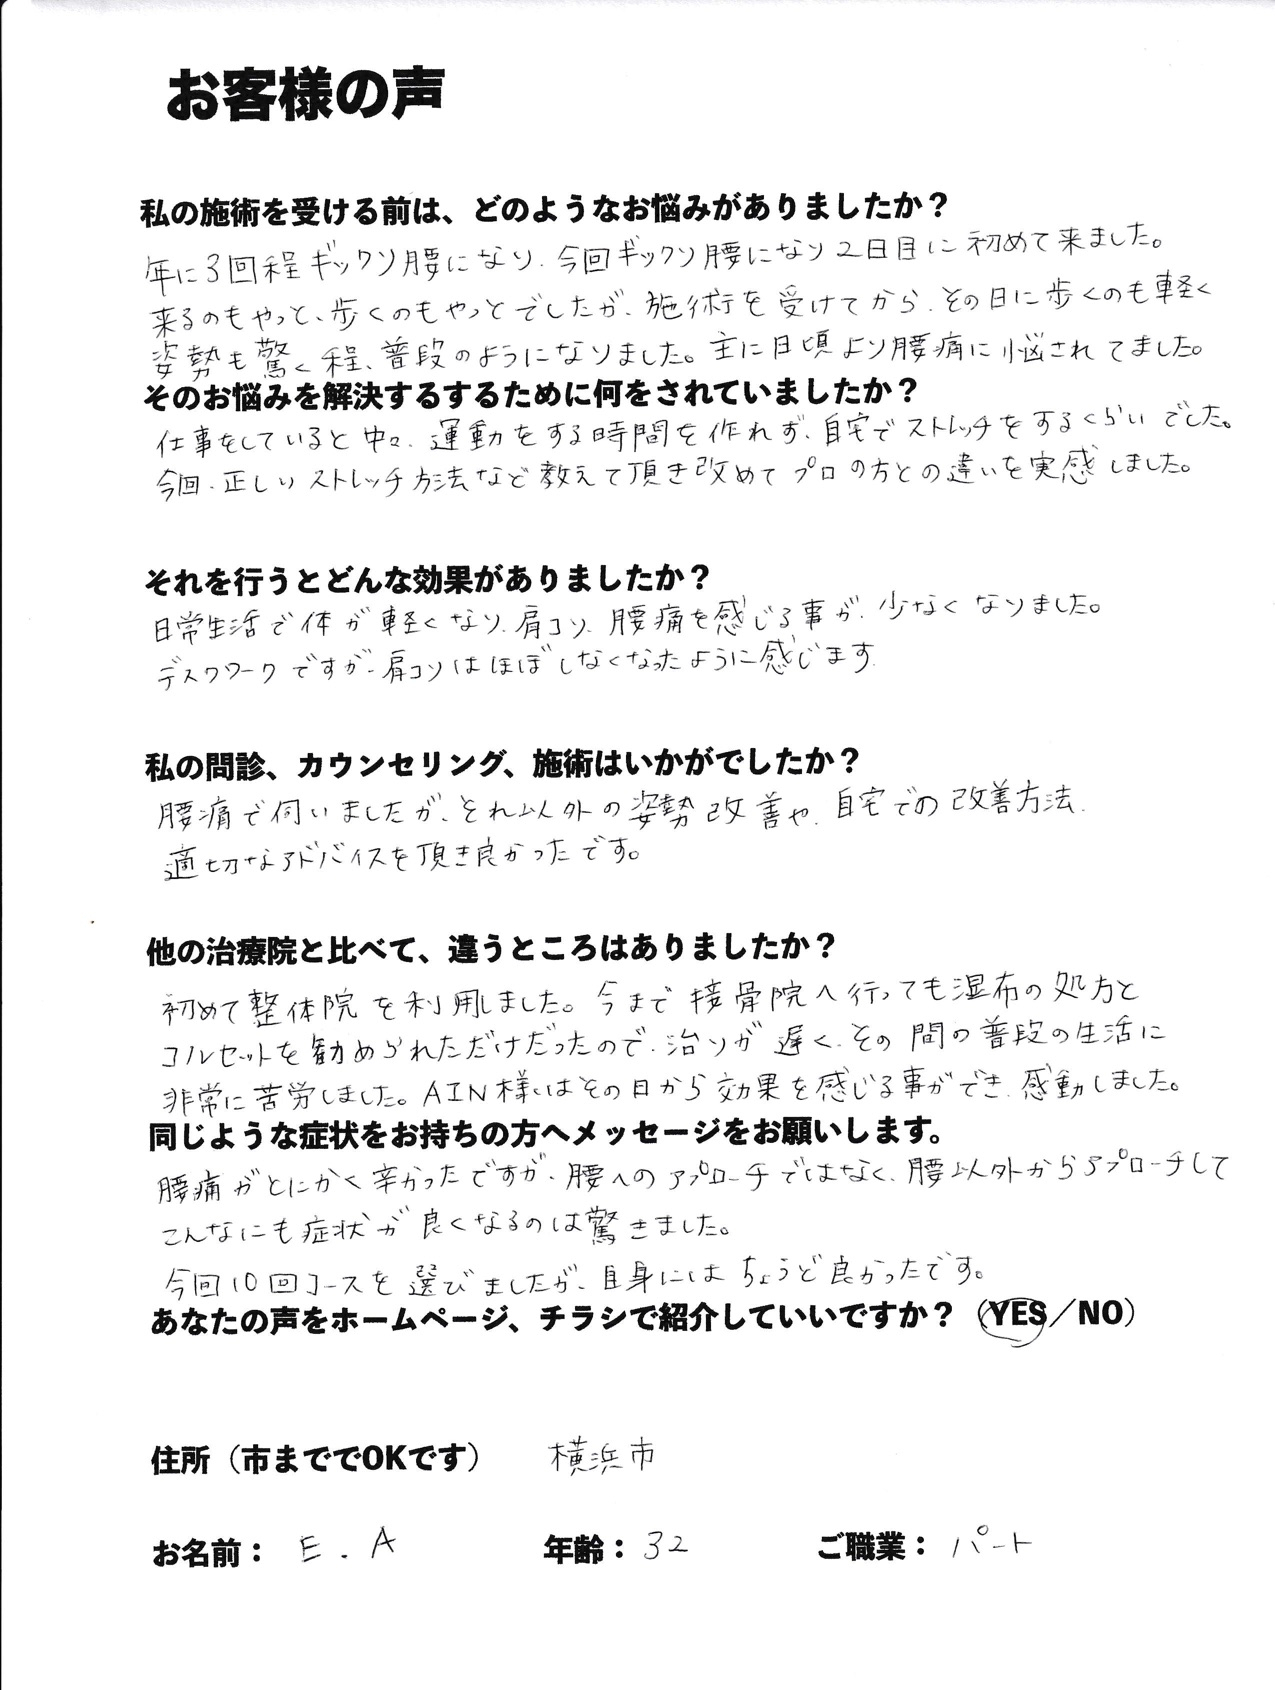 お客様の声
私の施術を受ける前は、どのようなお悩みがありましたか？
年に3回程ギックリ腰になり、今回ギックリ腰になり2日目に初めて来ました。
来るのもやっと、歩くのもやっとでしたが、施術を受けてから、その日に歩くのも軽く
姿勢も驚く程、普段のようになりました。主に日頃より腰痛に悩されてました。
そのお悩みを解決するするために何をされていましたか？
仕事をしていると中々、運動をする時間を作れず、自宅でストレッチをするくらいでした。
今回、正しいストレッチ方法など教えて頂き改めてプロの方との違いを実感しました。
それを行うとどんな効果がありましたか？
日常生活で体が軽くなり、肩コリ、腰痛を感じる事が、少なくなりました。
デスクワークですが、肩コリはほぼしなくなったように感じます
私の問診、カウンセリング、施術はいかがでしたか？
腰痛で伺いましたが、それ以外の姿勢改善や、自宅での改善方法、
適切なアドバイスを頂き良かったです。
他の治療院と比べて、違うところはありましたか？
初めて整体院を利用しました。今まで接骨院へ行っても湿布の処方と
コルセットを勧められただけだったので、治りが遅く、その間の普段の生活に
非常に苦労しました。AIN様はその日から効果を感じる事ができ、感動しました。
同じような症状をお持ちの方へメッセージをお願いします。
腰痛がとにかく辛かったですが、腰へのアプローチではなく、腰以外からアプローチして
こんなにも症状が良くなるのは驚きました。
今回10回コースを選びましたが、自身にはちょうど良かったです。
あなたの声をホームページ、チラシで紹介していいですか？（YES／NO）
住所（市まででOKです） 横浜市
お名前： E.A 年齢： 32 ご職業： パート